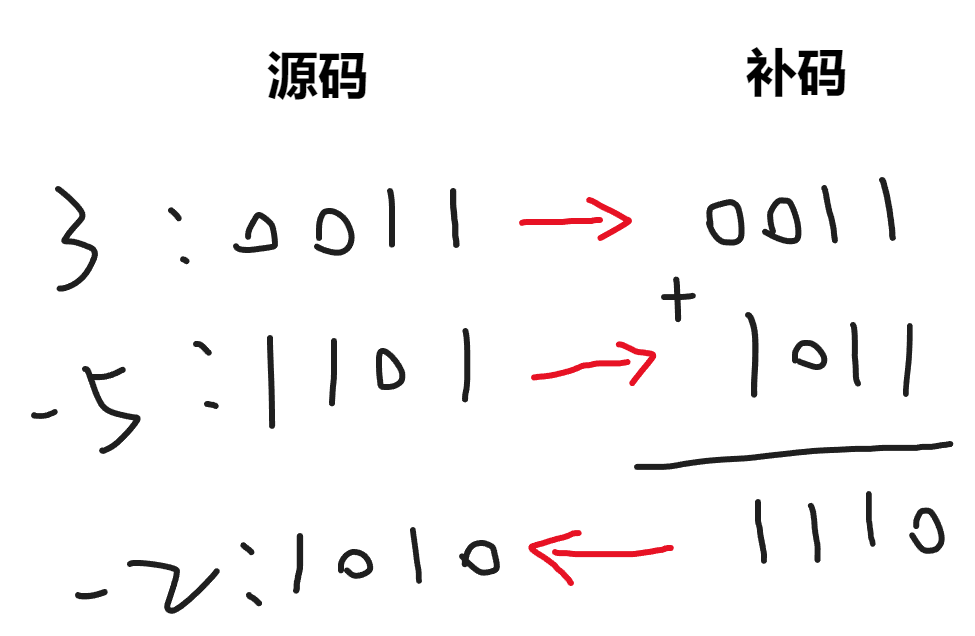 源码 补码
3:0011 → 0011
+
-5:1101 → 1011
-2:1010 ← 1110